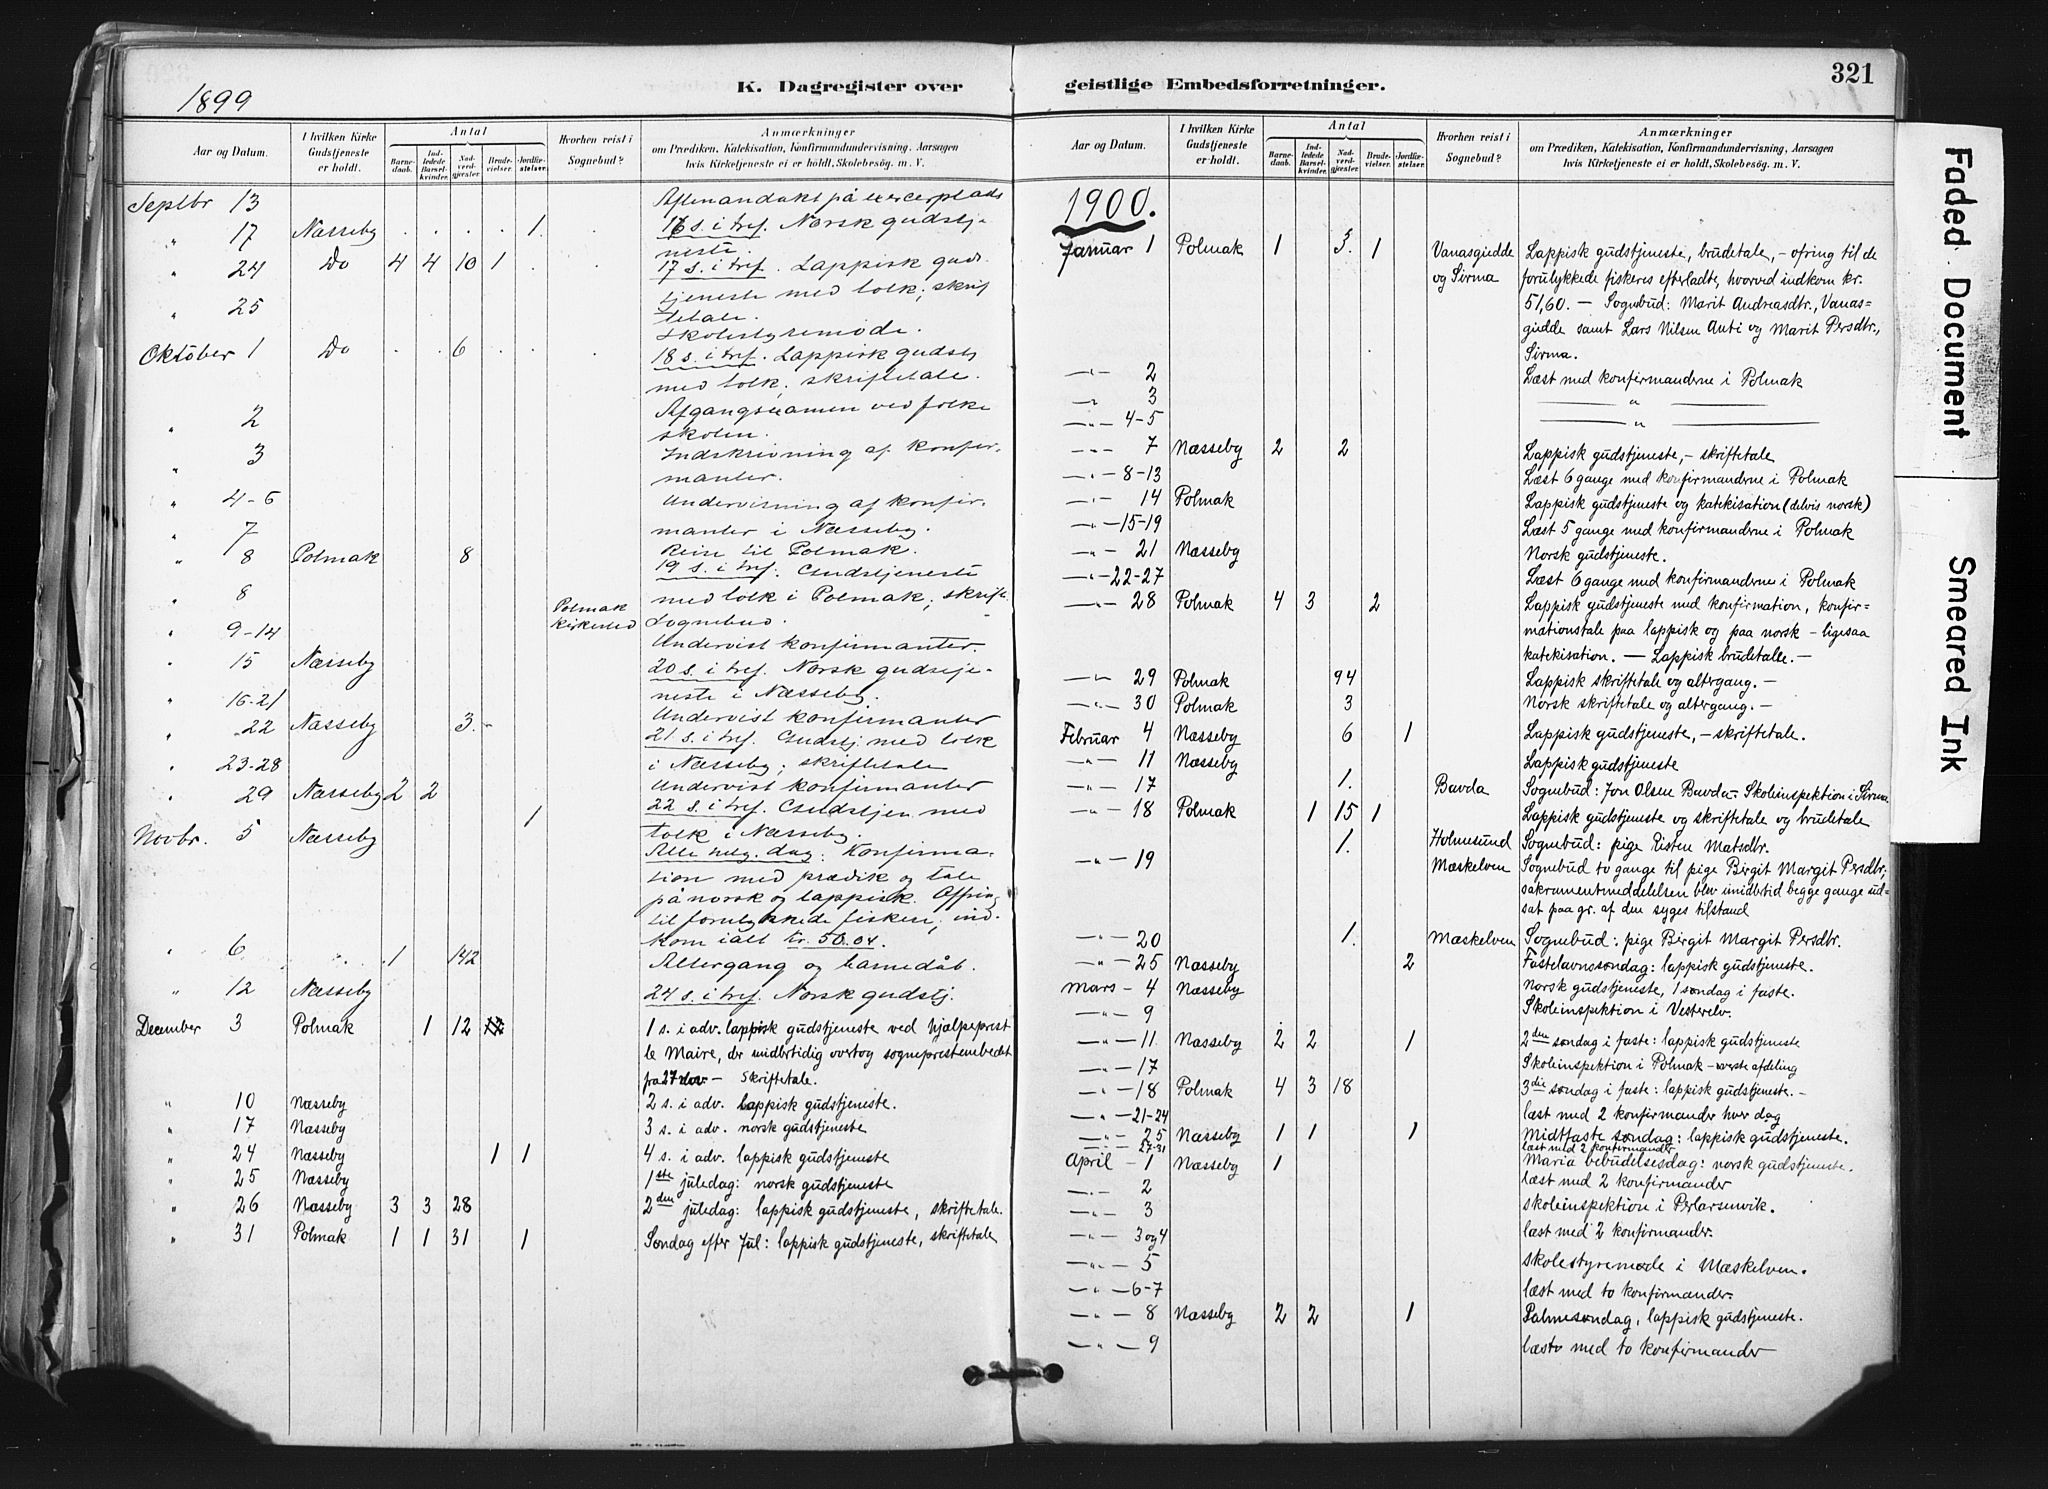 321
1899
K. Dagregister over
geistlige Embedsforretninger.
Aar og Datum.
I hvilken Kirke Gudstjeneste er holdt.
Antal
Barnedaab.
Indledede Barselkvinder.
Nadverdgjester.
Brudevielser.
Jordfæstelser.
Hvorhen reist i Sognebud?
Anmærkninger
om Prædiken, Katekisation, Konfirmandundervisning, Aarsagen
hvis Kirketjeneste ei er holdt, Skolebesøg. m. V.
Septbr 13 Aftenandakt på excerplads
" 17 Næsseby . . . . 1. 16 s. i tref. Norsk gudstj-
neste.
" 24 Do 4 4 10 1 . . 17 s. i tref. Lappisk guds-
tjeneste med tolk; skrif
tetale.
" 25 Skolestyremøde.
Oktober 1 Do . . 6 . . . 18 s. i tref. Lappisk gudstj
med tolk; skriftetale.
" 2 Afgangsexamen ved folke
skolen.
" 3 Indskrivning af konfir-
manter.
" 4-6 Undervisning af konfir-
manter i Næsseby.
" 7 Reise til Polmak.
" 8 Polmak 8 19 s. i tref. Gudstjeneste
med tolk i Polmak; skrift.
" 8 Polmak kirkested Sognebud.
" 9-14 Undervist konfirmanter.
" 15 Næsseby 20 s. i tref. Norsk gudstje-
neste i Næsseby.
" 16-21 Undervist konfirmanter
" 22 Næsseby 3. 21 s. i tref. Gudstj. med tolk
i Næsseby; skriftetale
" 23-28 Undervist konfirmanter
" 29 Næsseby 2 2 22 s. i tref. Gudstjen. med
tolk i Næsseby.
Novbr. 5 Næsseby 1 Alle helg. dag: Konfirma-
tion med prædik og tale
på norsk og lappisk. Offring
til forulykkede fiskere; ind-
kom ialt kr. 50.04.
" 6 1 142 Altergang og barnedåb.
" 12 Næsseby 24 s. i tref. Norsk gudstj.
December 3 Polmak 1 12 1 s. i adv. lappisk gudstjeneste ved hjælpeprest
le Maire, der midlertidig overtog sogneprestembedet
fra 27 nov. — Skriftetale.
" 10 Næsseby 2 s. i adv. lappisk gudstjeneste.
" 17 Næsseby 3 s. i adv. norsk gudstjeneste
" 24 Næsseby 1 1 4 s. i adv. lappisk gudstjeneste
" 25 Næsseby 1ste juledag: norsk gudstjeneste
" 26 Næsseby 3 3 28 2den juledag: lappisk gudstjeneste, skriftetale.
" 31 Polmak 1 1 31 1 Søndag efter Jul: lappisk gudstjeneste, skriftetale
Aar og Datum.
I hvilken Kirke Gudstjeneste er holdt.
Antal
Barnedaab.
Indledede Barselkvinder.
Nadverdgjester.
Brudevielser.
Jordfæstelser.
Hvorhen reist i Sognebud?
Anmærkninger
om Prædiken, Katekisation, Konfirmandundervisning, Aarsagen
hvis Kirketjeneste ei er holdt, Skolebesøg. m. V.
1900.
Januar 1 Polmak 1 3. 1 Vanasgiedde og Sirma Lappisk gudstjeneste, brudetale, - ofring til de
forulykkede fiskeres efterladte, hvorved indkom kr.
51,60. — Sognebud: Marit Andreasdtr., Vanas=
giedde samt Lars Nilsen Anti og Marit Persdtr.,
Sirma.
—"— 2 Læst med konfirmanderne i Polmak
—"— 3 — " —
—"— 4-5 — " —
—"— 7 Næsseby 2 2 Lappisk gudstjeneste, - skriftetale
—"— 8-13 Læst 6 gange med konfirmanderne i Polmak
—"— 14 Polmak Lappisk gudstjeneste og katekisation (delvis norsk)
—"— 15-19 Læst 5 gange med konfirmanderne i Polmak
—"— 21 Næsseby Norsk gudstjeneste.
—"— 22-27 Læst 6 gange med konfirmanderne i Polmak
—"— 28 Polmak 4 3 2 Lappisk gudstjeneste med konfirmation, konfir=
mationstale paa lappisk og paa norsk - ligesaa
katekisation. — Lappisk brudetale. —
—"— 29 Polmak 94 Lappisk skriftetale og altergang. —
—"— 30 Polmak 3 Norsk skriftetale og altergang. —
Februar 4 Næsseby 6 1 Lappisk gudstjeneste, - skriftetale.
—"— 11 Næsseby Lappisk gudstjeneste
—"— 17 1. Bavda Sognebud: Jon Olsen Bavda. Skoleinspektion i Sirma
—"— 18 Polmak 1 15 1 Lappisk gudstjeneste og skriftetale og brudetale
1. Holmesund Sognebud: pige Kisten Matsdtr.
—"— 19 Mæskelven Sognebud to gange til pige Birgit Margit Persdtr,
sakramentmeddelelsen blev imidlertid begge gange ud-
sat paa gr. af den syges tilstand
—"— 20 1. Mæskelven Sognebud: pige Birgit Margit Persdtr.
—"— 25 Næsseby 2 Fastelavnssøndag: lappisk gudstjeneste.
Mars — 4 Næsseby Norsk gudstjeneste, 1 søndag i faste.
—"— 9 Skoleinspektion i Vesterelv.
—"— 11 Næsseby 2 2 1 2den søndag i faste: lappisk gudstjeneste
—"— 17 Skoleinspektion i Polmak - øverste afdeling
—"— 18 Polmak 4 3 18 3die søndag i faste: lappisk gudstjeneste. —
—"— 21-24 læst med 2 konfirmander hver dag
—"— 25 Næsseby 1 1 1 Midtfaste søndag: lappisk gudstjeneste.
—"— 27-31 læst med 2 konfirmander
April — 1 Næsseby 1 Maria bebudelsesdag: norsk gudstjeneste.
—"— 2 læst med 2 konfirmander
—"— 3 skoleinspektion i Perlarsenvik.
—"— 3 og 4 læst med 2 konfirmander.
—"— 5 skolestyremøde i Mæskelven.
—"— 6-7 læst med to konfirmander.
—"— 8 Næsseby 2 2 1 Palmesøndag, lappisk gudstjeneste.
—"— 9 læst med to konfirmander
Faded Document
Smeared Ink